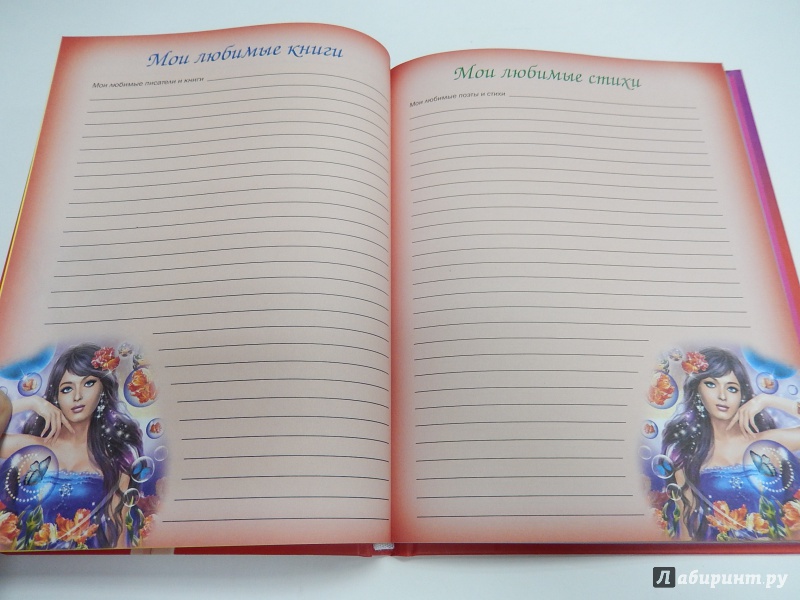 Мои любимые книги
Мои любимые писатели и книги
Мои любимые стихи
Мои любимые поэты и стихи
Лабиринт.ру